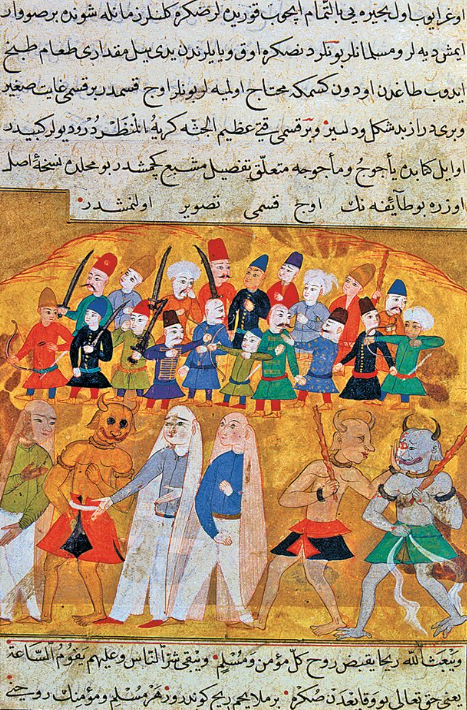 اوغرایوب اول بحیره یی بالتمام ایچوب قوریده لر ضکره کلنلر زمانله شونده بر صو وار
ایمش دیه لر و مسلمانلر بونلردن ضکره اوق و یایلرندن یدی ییل مقداری طعام طبخ
ایدوب طاغدن اودون کسمکه محتاج اولمیه لر بونلر اوج قسمدر بر قسمی غایت صغیر
و بری دراز بدشکل و بر قسمی قتی عظیم الجثه کریه المنظردر و دیولر کبیدر
اوایل کتابده یأجوج و مأجوجه متعلق تفصیل مشبع کچمشدر بو محلده نسخهٔ اصل
اوزره بو طآیفه نك اوج قسمی تصویر اولنمشدر
ویبعث الله ریحا یقبض روح کل مؤمن ومسلم ویبقی شر الناس وعلیهم یقوم الساعة
یعنی حق تعالی بو وقایعدن ضکره بر ملایم ریح کوندرور هر مسلم و مؤمنك روحنی